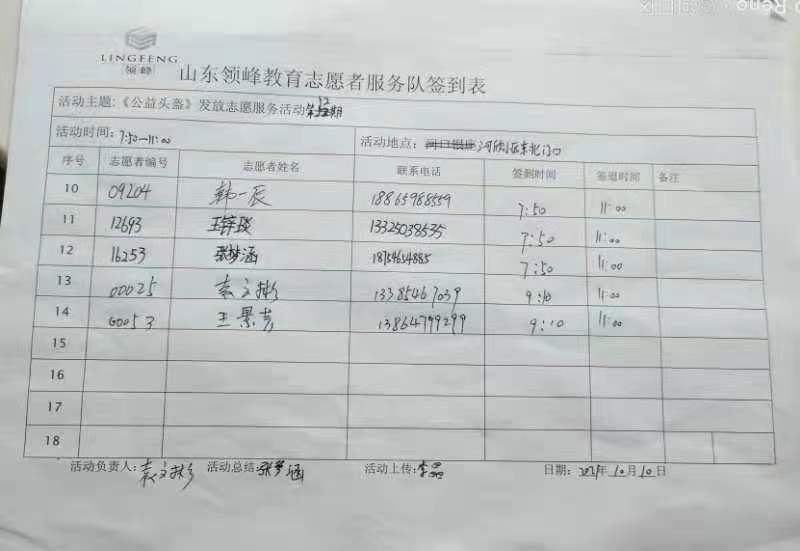 LINGFENG
领峰
山东领峰教育志愿者服务队签到表
活动主题:《公益头盔》发放志愿服务活动第12期
活动时间: 7:50—11:00 活动地点: 河口
序号 志愿者编号 志愿者姓名 联系电话 签到时间 签退时间 备注
10 09204 韩一辰 18865988559 7:50 11:00
11 12693 13325038535 7:50 11:00
12 16253 张梦涵 7:50 11:00
13 00025 袁文彬 13385467039 9:10 11:00
14 00053 王景芳 13864799299 9:10 11:00
15
16
17
18
活动负责人: 袁文彬 活动总结: 张梦涵 活动上传: 李晶 日期: 2021年10月10日